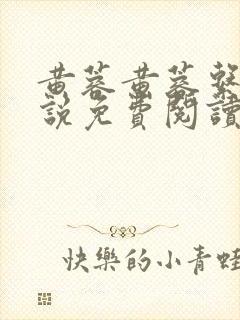 黃蓉黃蓉
說免費閱讀
快樂的小青蛙